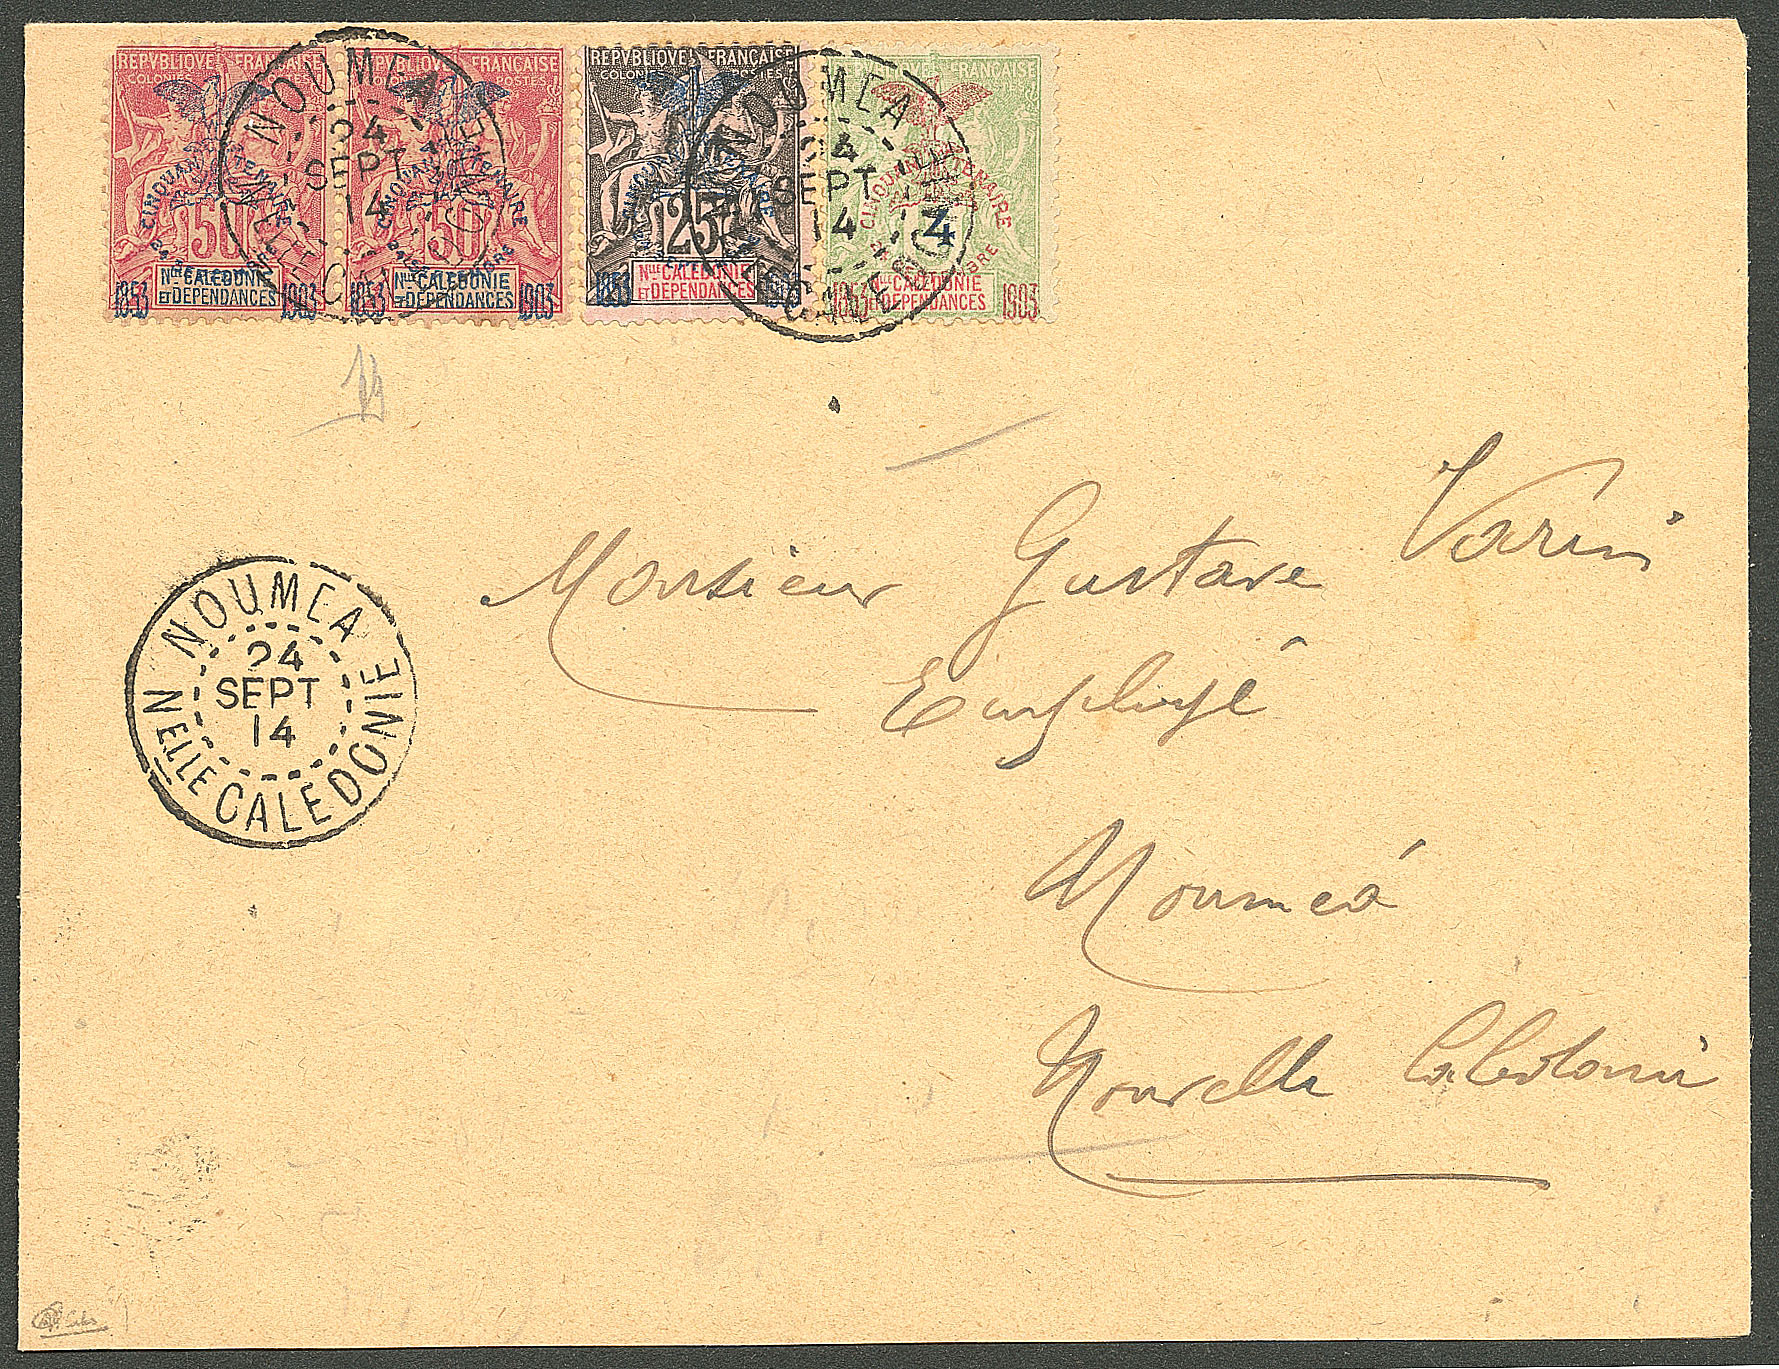 REPVBLIQVE FRANÇAISE
COLONIES POSTES
CINQUANTENAIRE
24 SEPTEMBRE
50
NLLE CALÉDONIE
ET DÉPENDANCES
1853 1903
REPVBLIQVE FRANÇAISE
COLONIES POSTES
CINQUANTENAIRE
24 SEPTEMBRE
50
NLLE CALÉDONIE
ET DÉPENDANCES
1853 1903
REPVBLIQVE FRANÇAISE
COLONIES
CINQUANTENAIRE
25
NLLE CALÉDONIE
ET DÉPENDANCES
1853
REPVBLIQVE FRANÇAISE
CINQUANTENAIRE
4
NLLE CALÉDONIE
ET DÉPENDANCES
1853 1903
NOUMEA
24
SEPT
14
NELLE CALEDONIE
NOUMEA
24
SEPT
14
NELLE CALEDONIE
Monsieur Gustave Varin
Employé
Nouméa
Nouvelle Calédonie
NOUMEA
24
SEPT
14
NELLE CALEDONIE